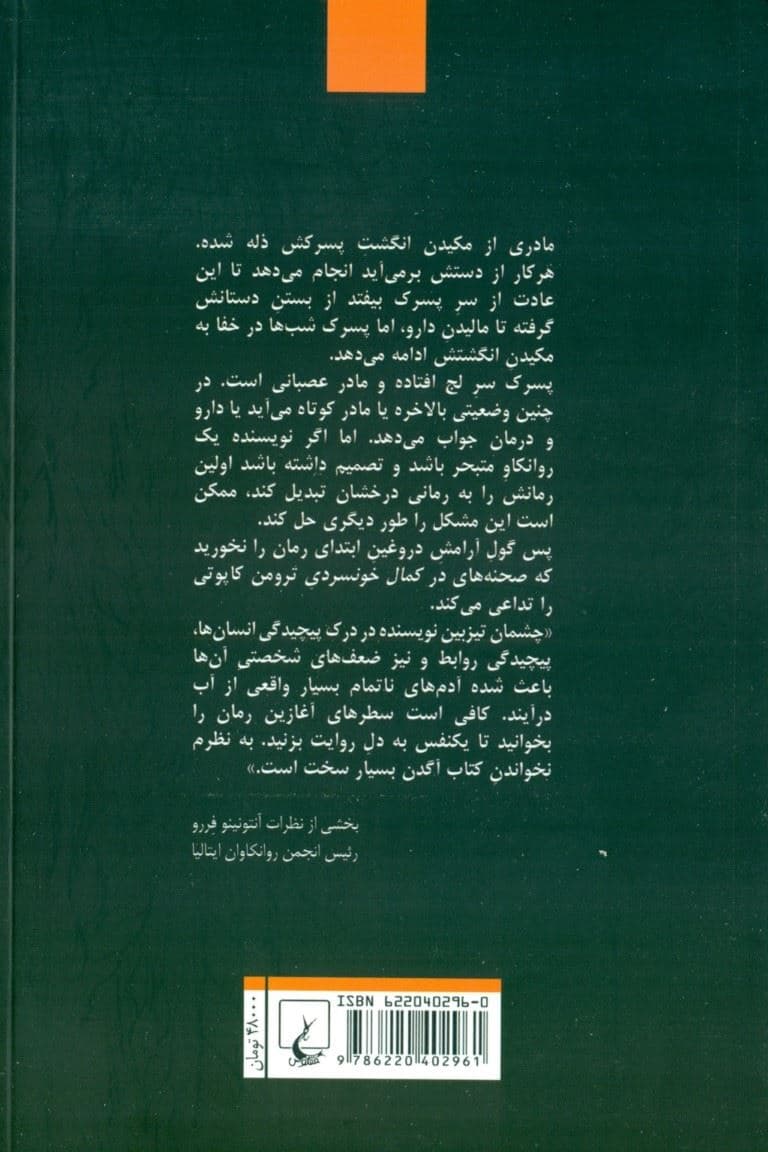 مادری از مکیدن انگشتِ پسرکش ذله شده.
هرکار از دستش برمی‌آید انجام می‌دهد تا این
عادت از سرِ پسرک بیفتد از بستنِ دستانش
گرفته تا مالیدنِ دارو، اما پسرک شب‌ها در خفا به
مکیدنِ انگشتش ادامه می‌دهد.
پسرک سرِ لج افتاده و مادر عصبانی است. در
چنین وضعیتی بالاخره یا مادر کوتاه می‌آید یا دارو
و درمان جواب می‌دهد. اما اگر نویسنده یک
روانکاوِ متبحر باشد و تصمیم داشته باشد اولین
رمانش را به رمانی درخشان تبدیل کند، ممکن
است این مشکل را طور دیگری حل کند.
پس گولِ آرامشِ دروغینِ ابتدای رمان را نخورید
که صحنه‌های در کمال خونسردیِ ترومن کاپوتی
را تداعی می‌کند.
«چشمان تیزبین نویسنده در درک پیچیدگی انسان‌ها،
پیچیدگی روابط و نیز ضعف‌های شخصتی آن‌ها
باعث شده آدم‌های ناتمام بسیار واقعی از آب
درآیند. کافی است سطرهای آغازین رمان را
بخوانید تا یکنفس به دلِ روایت بزنید. به نظرم
نخواندنِ کتاب آگدن بسیار سخت است.»
بخشی از نظرات آنتونینو فِررو
رئیس انجمن روانکاوان ایتالیا
ISBN 622040296-0
9 786220 402961
۴۸۰۰۰ تومان
ققنوس